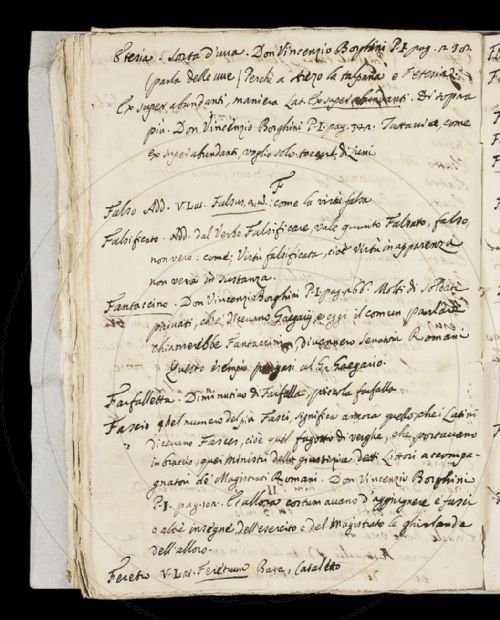 Etesia. Sorta d'uva. Don Vincenzio Borghini P. I. pag.
(parla delle uve) Perchè a e l'etesia.
Ex super abundanti, maniera Lat. Ex super abundanti. Di sopra
più. Don Vincenzio Borghini P. I. pag. Tuttavia, come
ex superabundanti, voglio solo di Luni
F
Falso Add. V. Lat. Falsus, a, u, come la virtù falsa
Falsificato. Add. dal Verbo Falsificare, vale quanto Falsato, falso,
non vero: come, Virtù falsificata, cioè Virtù in apparenza
non vera in sustanza.
Fantaccino. Don Vincenzio Borghini P. I. pag. 266. Molti di soldati
privati, che dicevano Gregarj, e oggi il comun parlare
chiamerebbe Fantaccini, divennero Senatori Romani
Questo esempio al G. Gregario.
Farfalletta. Diminutivo di Farfalla, piccola farfalla
Fascio qdel numero del più Fasci, significa ancora quello, che i Latini
dicevano Fasces, cioè quel fagotto di verghe, che portavano
in braccio, quei ministri della giustizia detti Littori accompa-
gnatori de' Magistrati Romani. Don Vincenzio Borghini
P. I. pag. E allora costumavano d'aggiugnere a' fasci
o altre insegne dell'esercito o del magistrato le ghirlande
dell'alloro.
Feretro V. Lat. Feretrum Bara, Cataletto